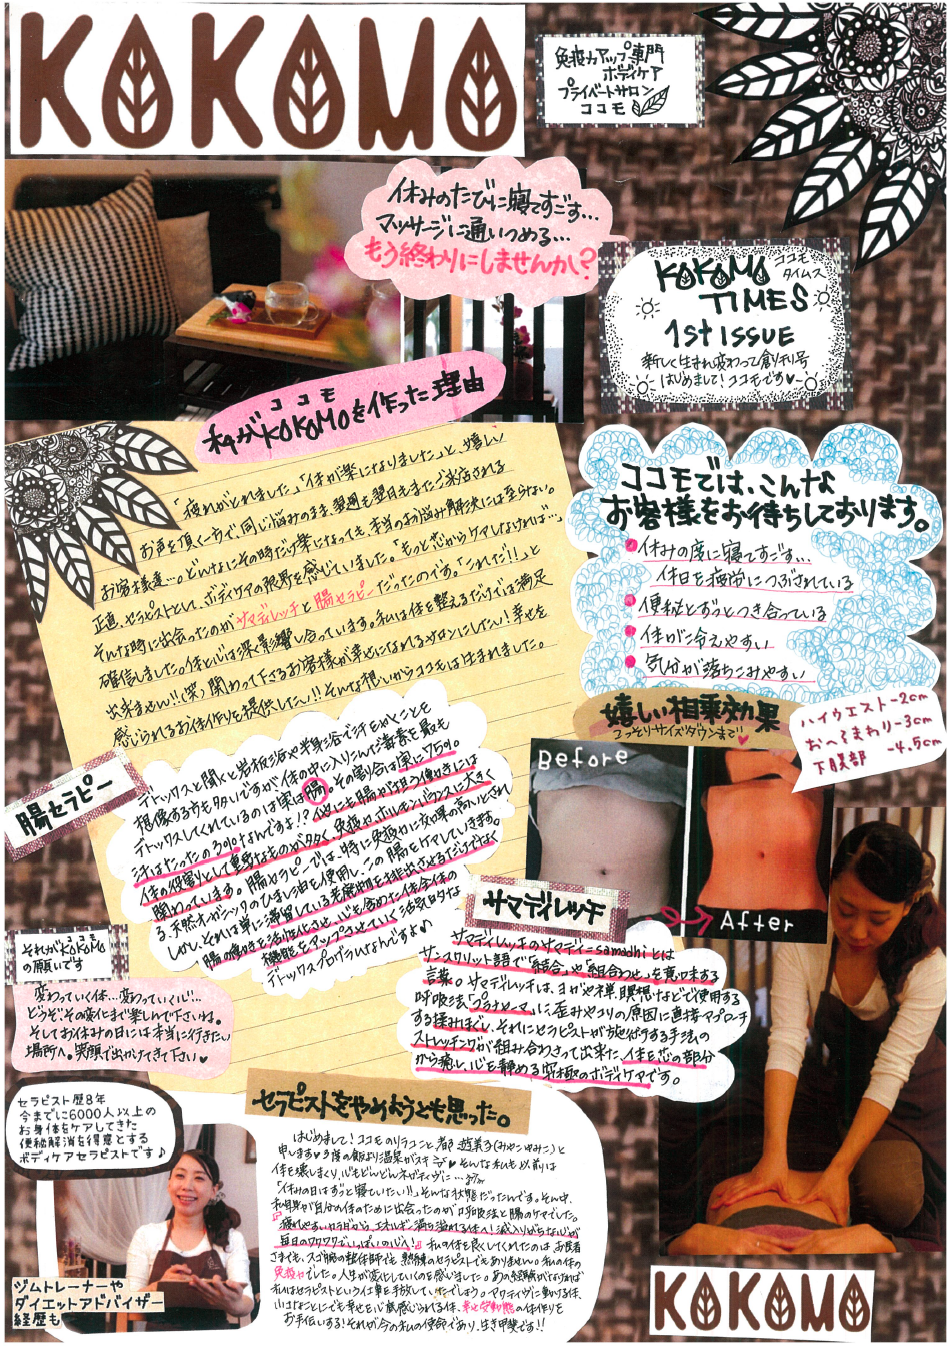 KOKOMO
免疫力アップ専門
ボディケア
プライベートサロン
ココモ
休みのたびに寝てすごす…
マッサージに通いつめる…
もう終わりにしませんか!?
KOKOMO ココモ
タイムス
TIMES
1st ISSUE
新しく生まれ変わって創刊号
はじめまして!ココモです♥
ココモ
私がKOKOMOを作った理由
「疲れがとれました」「体が楽になりました」と、嬉しい
お声を頂く一方で、同じ悩みのまま、翌週も翌月もまたご来店される
お客様達…。どんなにその時だけ楽になっても、本当のお悩み解決には至らない。
正直、セラピストとして、ボディケアの限界を感じていました。「もっと芯からケアしなければ…」
そんな時に出会ったのがサマディレッチと腸セラピーだったのです。「これだ!!」と
確信しました。体と心は深く影響し合っています。私は体を整えるだけでは満足
出来ません!!(笑)関わって下さるお客様が幸せになれるサロンにしたい!幸せを
感じられるお体作りを提供したい!!そんな想いからココモは生まれました。
ココモでは、こんな
お客様をお待ちしております。
休みの度に寝てすごす…
休日を疲労につぶされている
便秘とずっとつき合っている
体が冷えやすい
気分が落ちこみやすい
嬉しい相乗効果
こっそりサイズダウンまで♥
ハイウエスト-2cm
おへそまわり-3cm
下腹部 -4.5cm
Before
After
腸セラピー
デトックスと聞くと岩板浴や半身浴で汗をかくことを
想像する方も多いですが、体の中に入りこんだ毒素を最も
デトックスしてくれているのは実は腸。その割合は実に75%。
汗はたったの3%なんですよ!?他にも腸が担う働きには
体の役割として重要なものが多く、免疫やホルモンバランスに大きく
関わっています。腸セラピーでは、特に免疫力に効果の高いとされ
る、天然オーガニックのひまし油を使用し、この腸をケアしていきます。
しかし、それは単に滞留している老廃物を排出させるだけでなく
腸の働きを活性化させ、心も含めた体全体の
機能をアップさせていく活気的な
デトックスプログラムなんですよ♪
サマディレッチ
サマディレッチのサマディ=samadhiとは
サンスクリット語で「結合」や「組合わせ」を意味する
言葉。サマディレッチは、ヨガや禅、瞑想などで使用する
呼吸法「プラナヤーマ」に歪みやコリの原因に直接アプローチ
する揉みほぐし、それにセラピストが施術する手法の
ストレッチングが組み合わさって出来た、体を芯の部分
から癒し、心を静める究極のボディケアです。
ココモ
それがKOKOMO
の願いです
変わっていく体…変わっていく心…
どうぞその変化まで楽しんで下さいね。
そしてお休みの日には本当に行きたい
場所へ。笑顔で出かけてきて下さい♥
セラピスト歴8年
今までに6000人以上の
お身体をケアしてきた
便秘解消を得意とする
ボディケアセラピストです♪
ヅムトレーナーや
ダイエットアドバイザー
経歴も
セラピストをやめようとも思った。
はじめまして!ココモのリラコこと都
申します♥3度の飯より温泉がスキ♥そんな私も以前は
体を壊しまくり、心もどんどんネガティヴに…
「休みの日はずっと寝ていたい!!」そんな状態だったんです。そんな中、
私自身が自分の体のために出会ったのが呼吸法と腸のケアでした。
『疲れやすいカラダから、エネルギー満ち溢れる体へ!滅入りがちな心が
毎日のワクワクでいっぱいの心へ!』私の体を良くしてくれたのは、お医者
さまでも、スゴ腕の整体師でも、熟練のセラピストでもありません。私の体の
免疫力でした。人生が変化していくのを感じました。あの経験がなければ
私はセラピストという仕事を手放していたでしょう。アクティヴに動ける体、
小さなことにでも幸せを心底感じられる体、幸せ体質の体作りを
お手伝いする!それが今の私の使命であり、生き甲斐です!!
KOKOMO